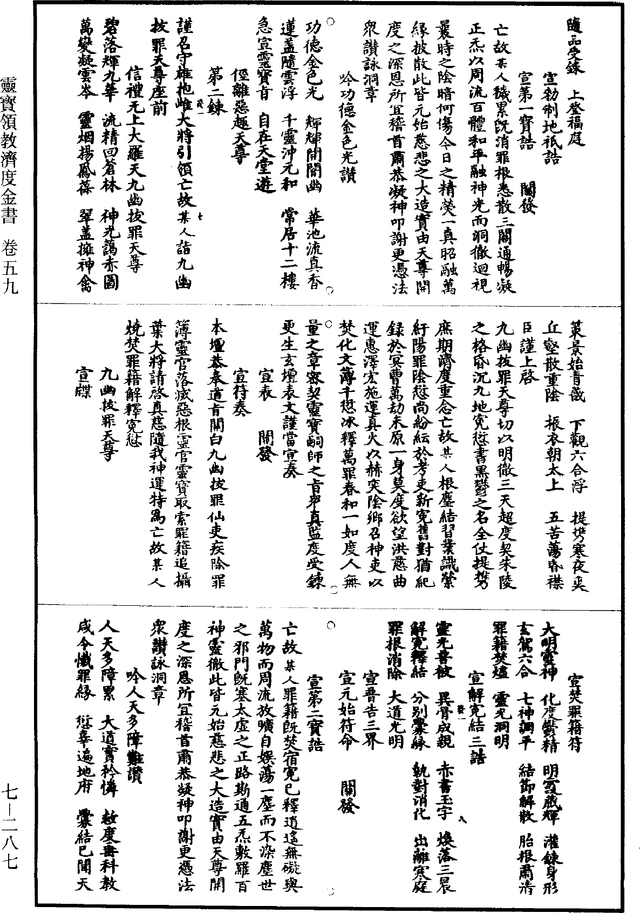 隨品受鍊　上登福庭
宣勑制地祇誥
宣第一寶誥　關發
亡故某人穢累既消罪根悉散三關通暢凝
正炁以周流百體和平融神光而洞徹迴視
曩時之陰暗何傷今日之精熒一真昭融萬
緣披散此皆元始慈悲之大造實由天尊開
度之深恩所宜稽首肅恭凝神叩謝更憑法
眾讚詠洞章
吟功德金色光讚
功德金色光　輝輝開闇幽　華池流真香
蓮蓋隨雲浮　千靈沖元和　常居十二樓
急宣靈寶旨　自在天堂遊
徑離惡趣天尊
第二鍊
謹召守雄抱雌大將引領亡故某人詣九幽
拔罪天尊座前
信禮无上大羅天九幽拔罪天尊
碧落輝九華　流精回蒼林　神光藹赤圓
萬變凝雲岑　靈烟揚鳳葆　翠蓋擁神禽
靈寶領教濟度金書　卷五九
策景始青徼　下觀六合浮　提拷寒夜奐
丘壑散重陰　振衣朝太上　五苦蕩昏襟
臣謹上啓
九幽拔罪天尊切以明徹三天超度契朱陵
之格昏沉九地冤愆書黑鬱之名全仗提攜
庶期濟度重念亡故某人根塵結習業識縈
紆陽罪陰愆尚紛紜於考吏新冤舊對猶紀
錄於冥曹萬劫未原一身莫度欲望洪慈曲
運惠澤宏施運真火以赫奕陰鄉召神吏以
焚化文簿千愆冰釋萬罪春和一如度人無
量之章密契靈寶嗣師之旨舉真監度受鍊
更生玄壇表文謹當宣奏
宣表　關發
宣符奏
本壇恭奉道旨關白九幽拔罪仙吏疾除罪
簿靈官落滅惡根靈官靈寶取索罪籍追攝
業大將請啓真慈隨我神運特爲亡故某人
燒焚罪籍解釋冤愆
九幽拔罪天尊
宣牒
宣焚罪籍符
大明靈神　化度鬱精　明霞藏輝　灌鍊身形
玄駕六合　七神調平　結節解散　胎根肅清
罪籍焚爐　靈光洞明
宣解冤結三誥
靈光普被　異骨成親　赤書玉字　煥落三晨
解冤釋結　分別纍緣　執對消化　出離寒庭
罪根消除　大道光明
宣普告三界
宣元始符命　關發
宣第二寶誥
亡故某人罪籍既焚宿冤已釋逍遙無礙與
萬物而周流放曠自娛蕩一塵而不染塵世
之邪門既塞太虛之正路斯通五炁敷羅百
神靈徹此皆元始慈悲之大造實由天尊開
度之深恩所宜稽首肅恭凝神叩謝更憑法
眾讚詠洞章
吟人天多障難讚
人天多障累　大道實矜憐　赦度垂科教
咸令懺罪緣　愆辜遍地府　纍結已聞天
七—二八七